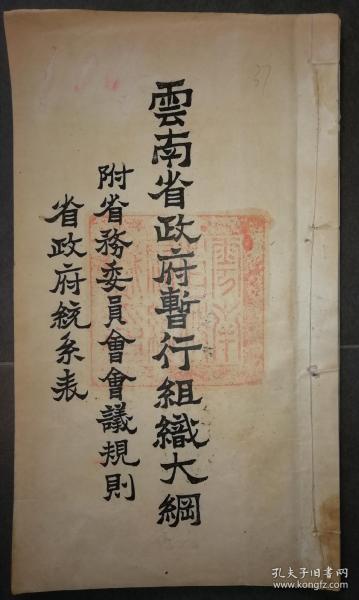 雲南省政府暫行組織大綱
附省務委員會會議規則
省政府統系表
37
孔夫子旧书网
www.kongfz.com